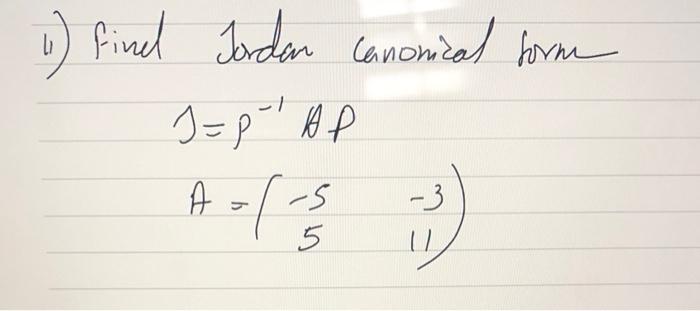 11) find Jordan canonical form
J = P⁻¹ A P
A = ( -5 -3
5 11 )